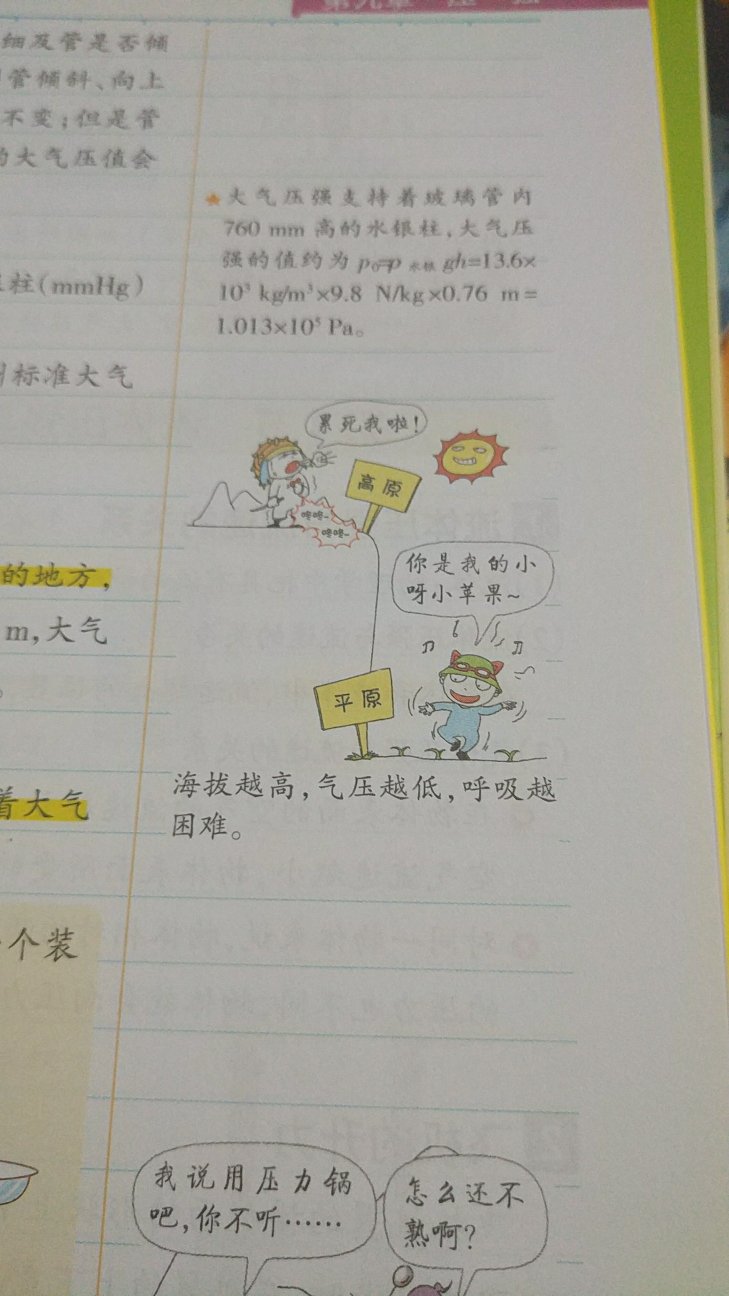 第九章 压 强
细及管是否倾
管倾斜、向上
不变；但是管
大气压值会
柱(mmHg)
标准大气
的地方，
m，大气
着大气
个装
★大气压强支持着玻璃管内
760 mm 高的水银柱，大气压
强的值约为 p₀=ρ水银gh=13.6×
10³ kg/m³×9.8 N/kg×0.76 m=
1.013×10⁵ Pa。
累死我啦！
高原
咚咚~
咚咚~
你是我的小
呀小苹果~
平原
海拔越高，气压越低，呼吸越
困难。
我说用压力锅
吧，你不听……
怎么还不
熟啊？